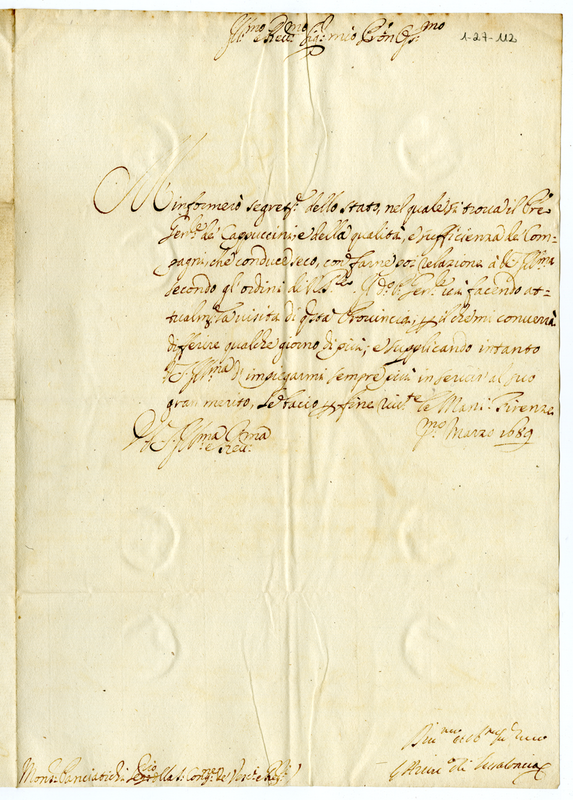 Ill.mo e Rev.mo Sig.r mio P̃rõn Oss.mo
1-27-112
M'informerò segret.e dello stato, nel quale si trova il P̃re
Gen.le de Cappuccini, e della qualità, e sufficienza de Com-
pagni, che conduce seco, con farne poi relazione à V.S. Ill.ma
secondo gl'ordini
Gen.le stà facendo at-
tualm.te la visita di q.sta Provincia, converrà
differire qualche giorno di più; e supplicando intanto
V.S. Ill.ma d'impiegarmi sempre più in servir al suo
gran merito, le faccio fine le Mani. Firenze
p.mo Marzo 1689
Di V.S. Ill.ma e Rev.ma
Mons.r Panciatichi Seg.rio della S. Cong.ne de Vesc.i e Reg.ri